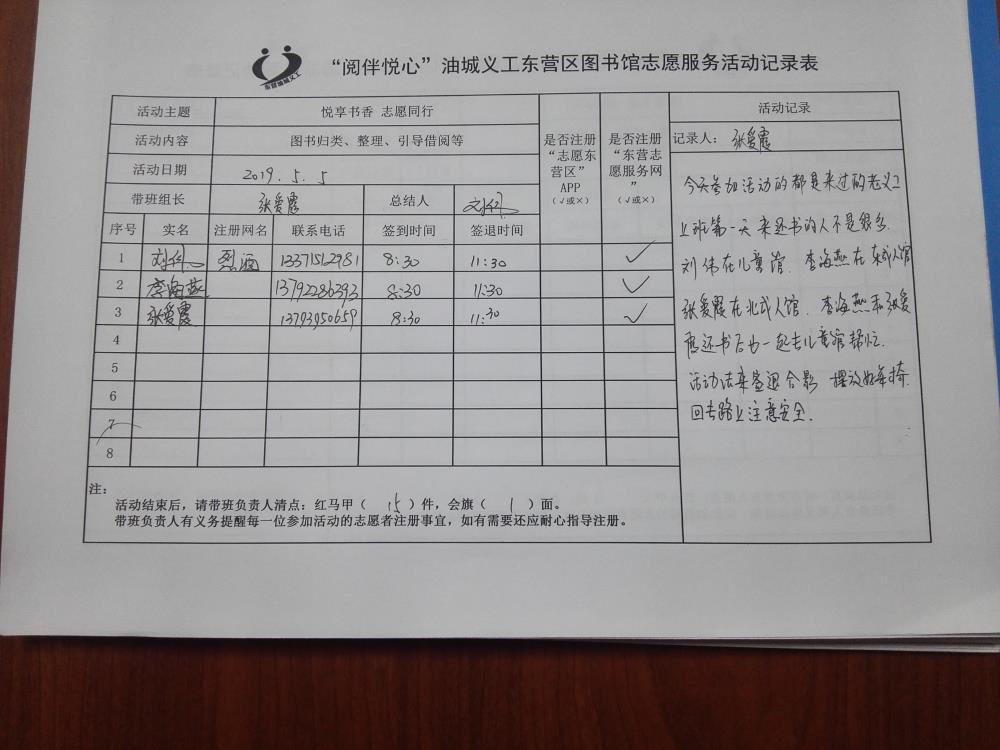 “阅伴悦心”油城义工东营区图书馆志愿服务活动记录表
东营油城义工
活动主题 悦享书香 志愿同行
活动内容 图书归类、整理、引导借阅等
活动日期 2019.5.5
带班组长 张爱霞 总结人 刘伟
是否注册“志愿东营区”APP（√或×）
是否注册“东营志愿服务网”（√或×）
序号 实名 注册网名 联系电话 签到时间 签退时间
1 刘伟 烈酒 13371512981 8:30 11:30 √
2 李海燕 13792286393 8:30 11:30 √
3 张爱霞 13793950659 8:30 11:30 √
4
5
6
7
8
注：
活动结束后，请带班负责人清点：红马甲（ 15 ）件，会旗（ 1 ）面。
带班负责人有义务提醒每一位参加活动的志愿者注册事宜，如有需要还应耐心指导注册。
活动记录
记录人： 张爱霞
今天参加活动的都是来过的老义工
上班第一天来还书的人不是很多.
刘伟在儿童馆. 李海燕在东成人馆
张爱霞在北成人馆. 李海燕和张爱
霞还书后也一起去儿童馆帮忙.
活动结束签退合影 摆放好桌椅.
回去路上注意安全.